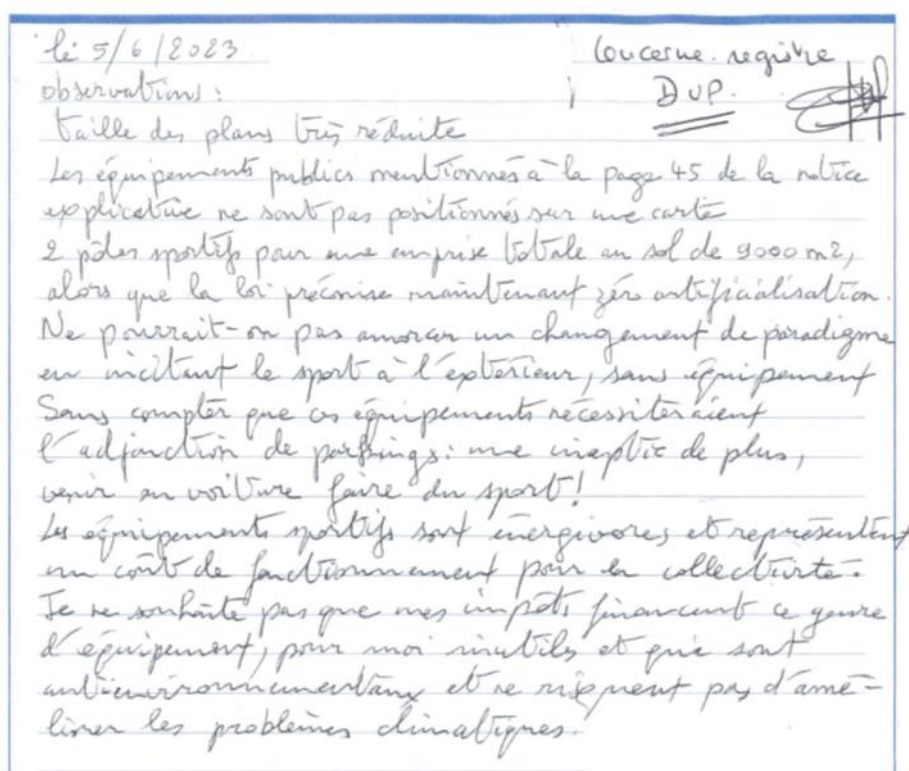 le 5/6/2023
Concerne registre
DUP.
observations :
taille des plans très réduite
Les équipements publics mentionnés à la page 45 de la notice
explicative ne sont pas positionnés sur une carte
2 pôles sportifs pour une emprise totale au sol de 9000 m2,
alors que la loi préconise maintenant zéro artificialisation.
Ne pourrait-on pas amorcer un changement de paradigme
en incitant le sport à l'extérieur, sans équipement
Sans compter que ces équipements nécessiteraient
l'adjonction de parkings : une ineptie de plus,
venir en voiture faire du sport !
Les équipements sportifs sont énergivores et représentent
un coût de fonctionnement pour la collectivité.
Je ne souhaite pas que mes impôts financent ce genre
d'équipement, pour moi inutiles et qui sont
antienvironnementaux et ne risquent pas d'amé-
liorer les problèmes climatiques.